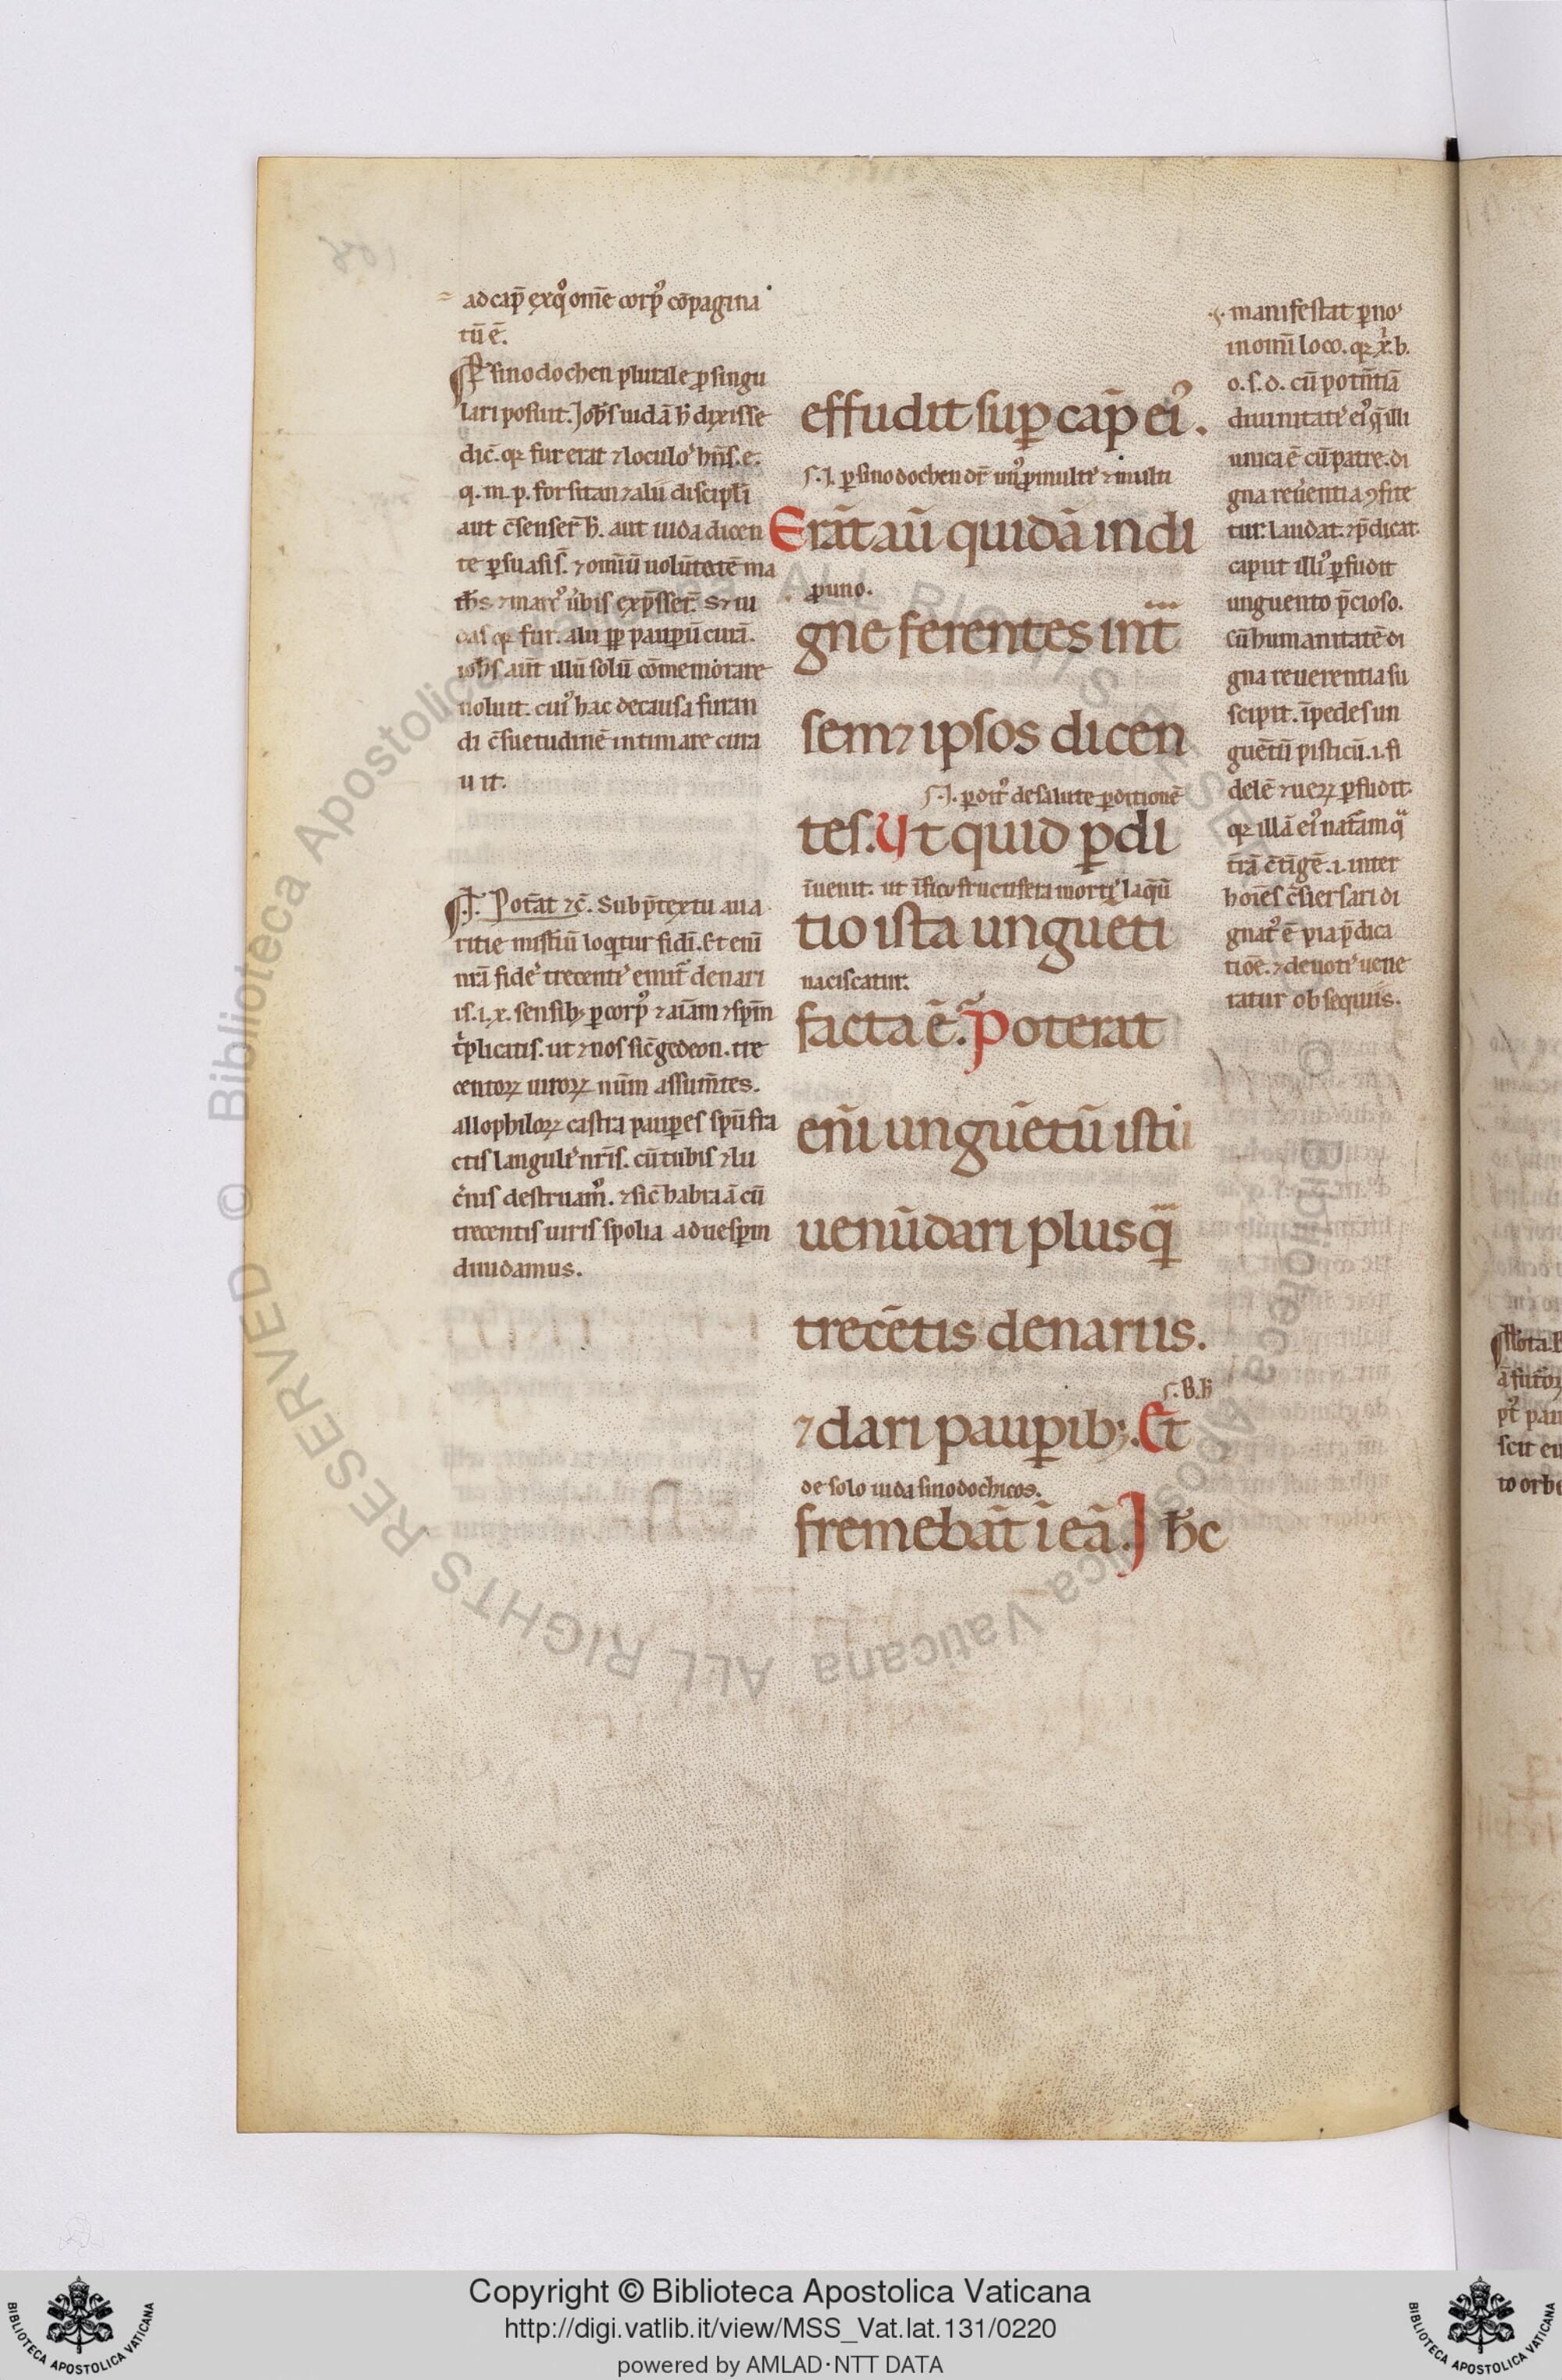 ad cap̄ ex qͦ om̄e corpꝰ cōpagina
tū ē.
¶ P̱ sinodochen plurale ꝓ singu
lari posuit. Joh̄s iudā h̄ dixisse
dic̄. qꝛ fur erat ⁊ loculoˢ hn̄s. e.
q. m. p. forsitan ⁊ alii discipl̄i
aut c̄senser̄ h̄. aut iuda dicen
te ꝑsuasiſ. ⁊ omīū uolūtatē ma
th̄s ⁊ marcꝰ ūbis exp̄sser̄. S; iu
das qꝛ fur. alii ꝓp̄ pauꝑū curā.
ioh̄s aut̄ illū solū cōmemorare
uoluit. cuiꝰ hac de causa furan
di c̄suetudinē intimare cura
uit.
¶ J. Pot̄at ⁊c̄. Sub p̄textu aua
ritie misteriū loq̄tur fidī. Et enī
nr̄a fideˢ trecentiˢ emit̄ denari
is. i. x. sensibꝫ ꝑ corpꝰ ⁊ aīam ⁊ spm̄
tplicatis. ut ⁊ nos sic̄ gedeon. tre
centoꝝ uiroꝝ nūm assum̄tes.
allophiloꝝ castra pauꝑes spū fra
ctis lagunculiˢ nr̄is. cū tubis ⁊ lu
c̄nis destruamꝰ. ⁊ sic̄ habraā cū
trecentis uiris spolia ad uesꝑm
diuidamus.
effudit suꝑ cap̄ eiꝰ.
S. J. ꝑ sinodochen dr̄ unꝰ ꝓ multiˢ ⁊ multi
Erāt aū quidā indi
ꝓ uno.
gne ferentes int̄
sem⁊ ipsos dicen
S. J. ꝑditꝰ de salute ꝑditionē
tes. Ut quid ꝑdi
īuenit. ut ī ficu fructifera mortiˢ laq̄ū
tio ista ungueti
naciscatur.
facta ē. Poterat
eni unguētū istū
uenūdari plusq̄
trecētis denariis.
S. B. h̄
⁊ dari pauꝑibꝫ. Et
de solo iuda sinodochicos.
fremebāt ī eā. J h̄c
manifestat ꝑ noˢ
in omī loco. qꝛ x̄. b.
o. s. d. cū potn̄tiā
diuinitatiˢ eiꝰ q̄ illi
unica ē cū patre. di
gna reuēentia ꝯfite
tur. laudat. ⁊ p̄dicat.
caput illiꝰ ꝑfudit
unguento p̄cioso.
cū humanitatē di
gna reuerentia su
scipit. ī pedes un
guētū pisticū. i. fi
delē ⁊ ueꝝ ꝑfudit.
qꝛ illā eiꝰ nat̄am q̄
tr̄ā c̄tīgē. i. inter
hoīes c̄uersari di
gnat̄ ē pia p̄dica
tiōe. ⁊ deuotiˢ uene
ratur obsequiis.
Copyright © Biblioteca Apostolica Vaticana
http://digi.vatlib.it/view/MSS_Vat.lat.131/0220
powered by AMLAD·NTT DATA